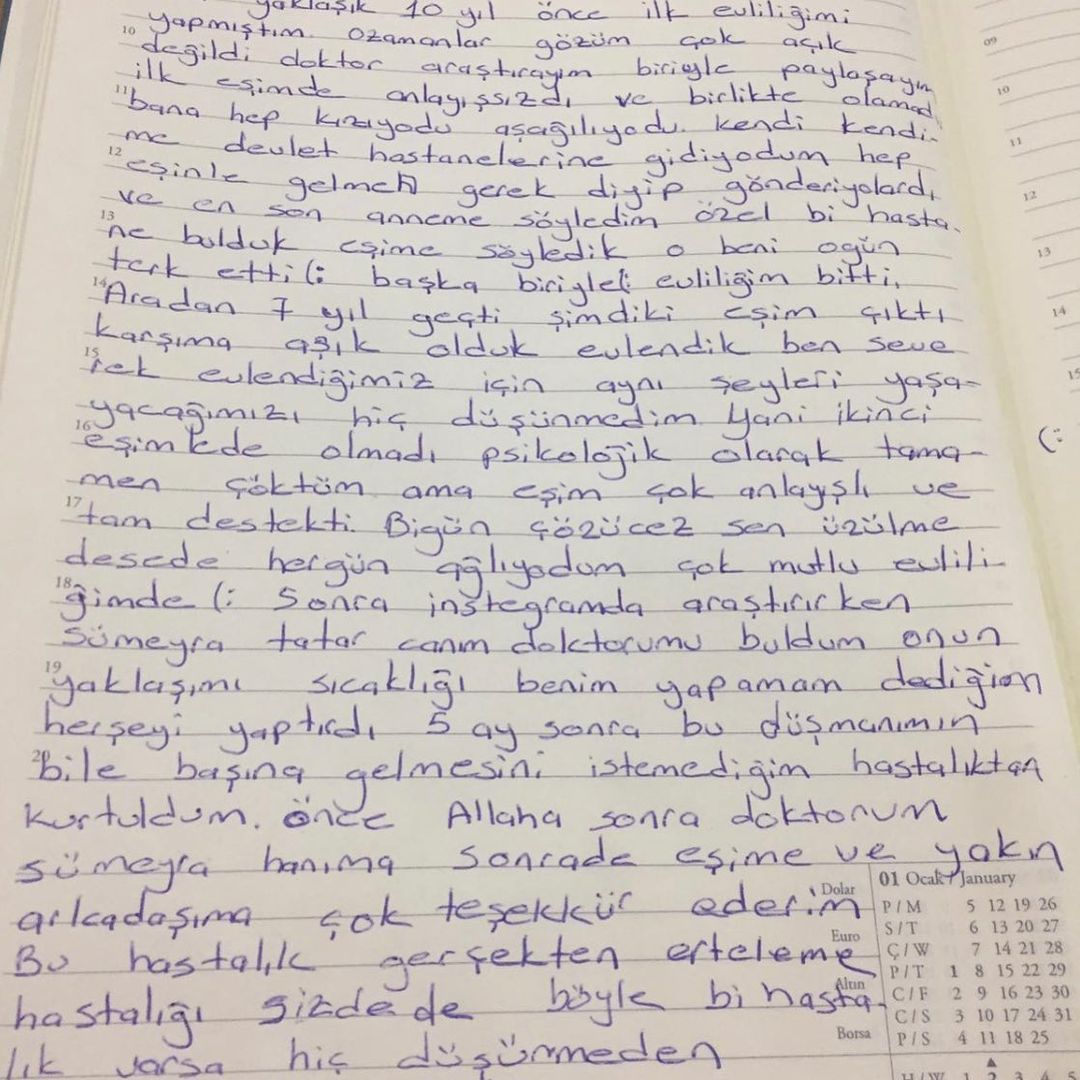 yaklaşık 10 yıl önce ilk evliliğimi
yapmıştım. Ozamanlar gözüm çok açık
10
değildi doktor araştırayım biriyle paylaşayım
ilk eşimde anlayışsızdı ve birlikte olamad
11
bana hep kızıyodu aşağılıyodu. kendi kendi-
me devlet hastanelerine gidiyodum hep
12
eşinle gelmen gerek diyip gönderiyolardı
ve en son anneme söyledim özel bi hasta-
13
ne bulduk eşime söyledik o beni ogün
terk etti (: başka biriyle(: evliliğim bitti.
14
Aradan 7 yıl geçti şimdiki eşim çıktı
karşıma aşık olduk evlendik ben seve
15
rek evlendiğimiz için aynı şeyleri yaşa-
yacağımızı hiç düşünmedim. Yani ikinci
16
eşimlede olmadı psikolojik olarak tama-
men çöktüm ama eşim çok anlayışlı ve
17
tam destekti. Bigün çözücez sen üzülme
desede hergün ağlıyodum çok mutlu evlili-
18
ğimde (: Sonra instegramda araştırırken
Sümeyra tatar canım doktorumu buldum onun
19
yaklaşımı sıcaklığı benim yapamam dediğim
herşeyi yaptırdı 5 ay sonra bu düşmanımın
bile başına gelmesini istemediğim hastalıktan
kurtuldum. önce Allaha sonra doktorum
sümeyra hanıma sonrade eşime ve yakın
arkadaşıma çok teşekkür ederim
Bu hastalık gerçekten erteleme
hastalığı sizdede böyle bi hasta-
lık varsa hiç düşünmeden
Dolar
Euro
Altın
Borsa
01 Ocak / January
P / M 5 12 19 26
S / T 6 13 20 27
Ç / W 7 14 21 28
P / T 1 8 15 22 29
C / F 2 9 16 23 30
C / S 3 10 17 24 31
P / S 4 11 18 25
H / W 1 2 3 4 5
09
10
11
12
13
14
15
(: